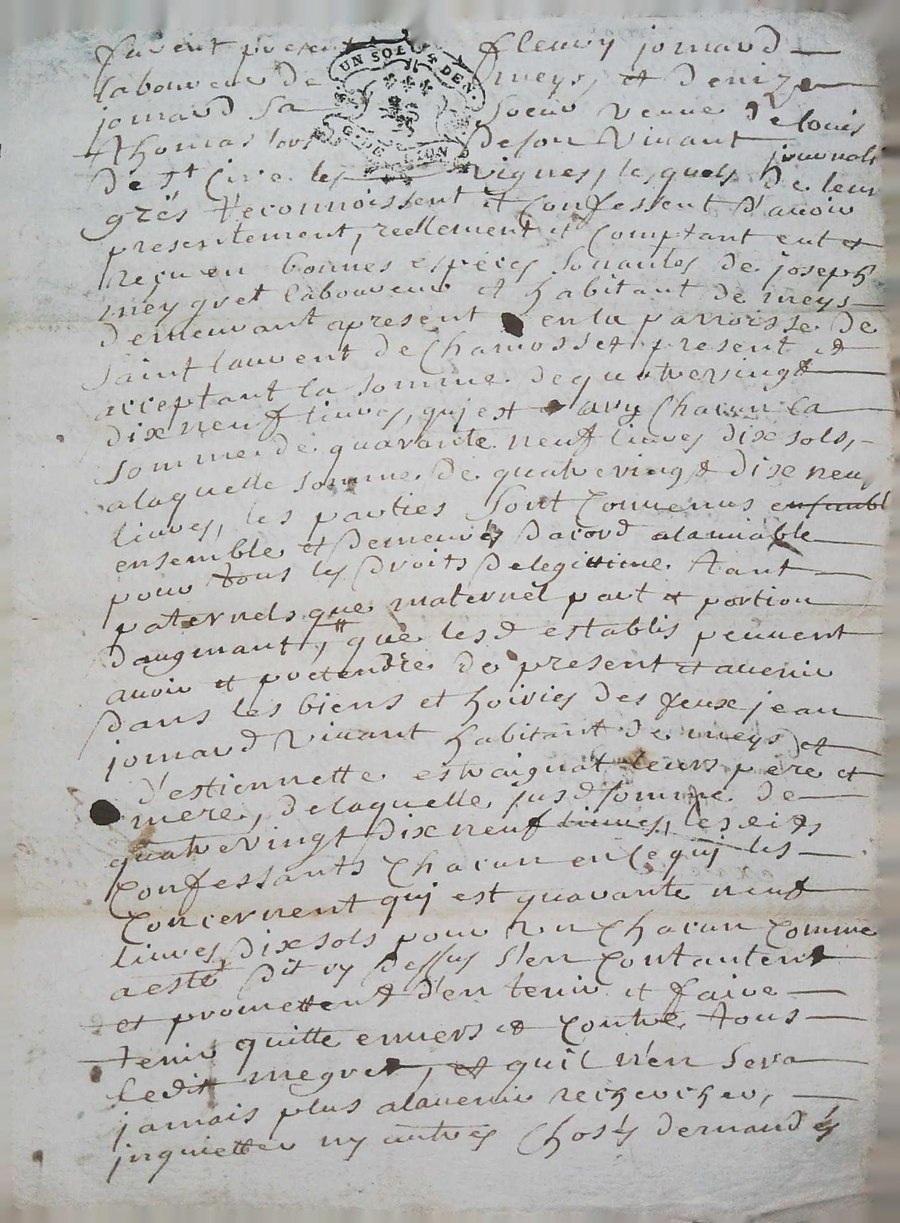 furent present fleury jomard
UN SOL 4 DEN.
laboureur de meys, et denize
jomard sa soeur veuve de louis
thomas lors de son vivant journali
G. DE LYON
de st Cire les vignes, lesquels de leur
grés reconnoissent et Confessent d'avoir
presentement, reellement et Comptant eut et
reçu en bonnes espèces sonantes de joseph
meygret laboureur et habitant de meys
demeurant apresent en la parroisse de
saint laurent de Chamosset present et
acceptant la somme de quatrevingt
dixneuf livres, qui est a Chacun la
somme de quarante neuf livres dix sols,
a laquelle somme de quatrevingt dix neuf
livres, les parties sont Convenus ensanbl
ensemble et demeurés dacord alamiable
pour tous les droits delegittime tant
paternels que maternel part et portion
daugmant, que lesd establis peuvent
avoir et pretendre de present et avenir
dans les biens et hoiries des feux jean
jomard vivant habitant de meys et
d'estiennette leurs père et
mere, de laquelle susd somme de
quatrevingt dix neuf livres, lesdits
Confessants Chacun en Ce qui les
Concernent qui est quarante neuf
livres dix sols pour un Chacun Comme
a esté dit cy dessus s'en Contantent
et promettent d'en tenir et faire
tenir quitte envers et Contre tous
ledit megret, et qu'il n'en sera
jamais plus alavenir rechercher,
inquietter ny autres Choses demandés